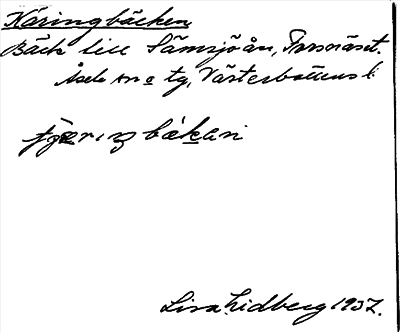 Käringbäcken
Bäck till Sämsjöån, Torsnäset.
Åsele sn o tg, Västerbottens l.
bäkan
Lisa Lidberg 1937.